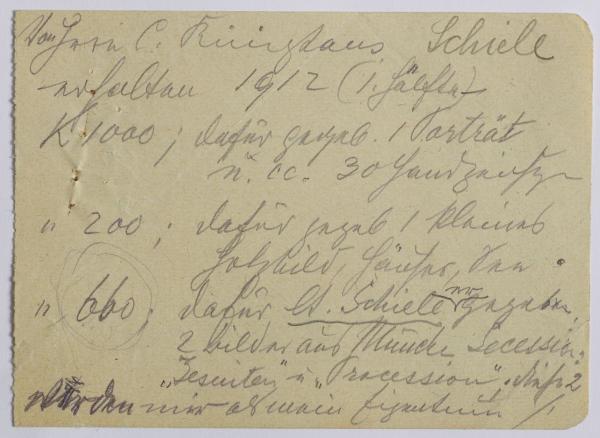 Von Herrn C. Reininghaus Schiele
erhalten 1912 (1. Hälfte)
K 1000; dafür gegeb. 1 Porträt
u. cc. 30 Handzeich
" 200; dafür gegeb 1 kleines
Holzbild, Häuser,
" 660; dafür lt. Schiele nur gegeben.
2 bilder aus Münch Secession.
" u. "Procession", diese 2
wurden mir als mein Eigentum